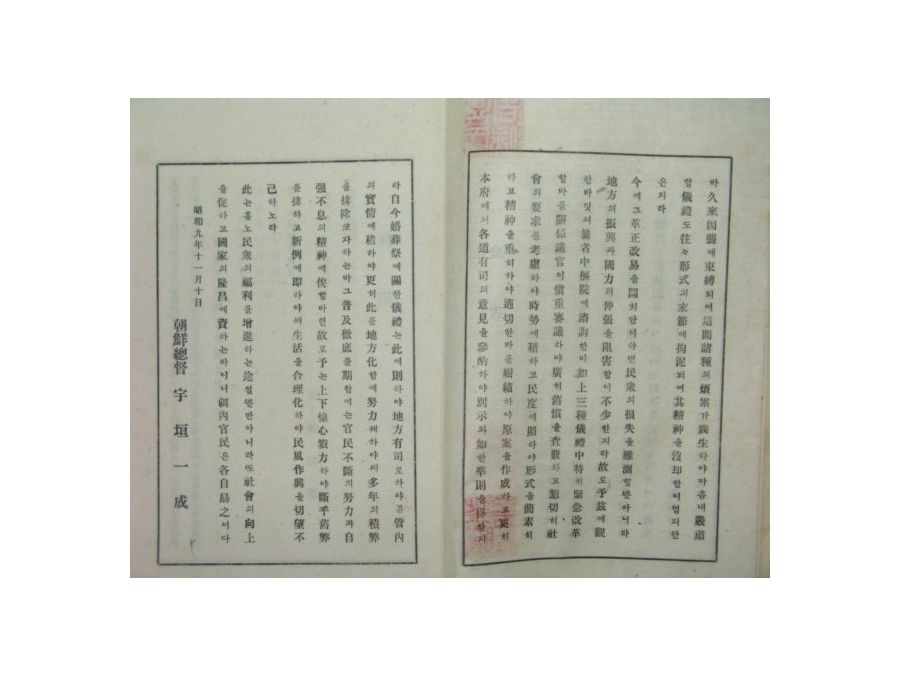 바久來因襲에束縛되여這間諸種의煩累가簇生하야마츰내嚴肅
할儀禮도往々形式의末節에拘泥되여其精神을沒却함이업지안
은지라
今에그革正改易을圖치안이하면民衆의損失을難測일뿐아니라
地方의振興과國力의伸張을阻害함이不少할지라故로予玆에觀
한바잇서曩者中樞院에諮詢한바如上三種儀禮中特히緊急改革
할바를關係議官이愼重審議하야廣히舊慣을査覈하고惎切히社
會의要求를考慮하야時勢에稽하고民度에照하야形式을簡素히
하고精神을重히하야適切한바를樹績하야原案을作成하고更히
本府에서各道有司의意見을參酌하야別示와如한準則을得한지
라自今婚葬祭에關한儀禮는此에則하야地方有司로하야곰管內
의實情에稽하야更히此를地方化함에努力케하야써多年의積弊
를排除코자하는바그普及徹底를期함에는官民不斷의努力과自
强不息의精神에俟할바인故로予는上下協心戮力하야斷乎舊弊
를排하고新例에卽하야써生活을合理化하야民風作興을切望不
已하노라
此는홀노民衆의福利를增進하는途일뿐만아니라또社會의向上
을促하고國家의隆昌에資하는바이니疆內官民은各自勗之어다
昭和九年十一月十日
朝鮮總督 宇垣一成